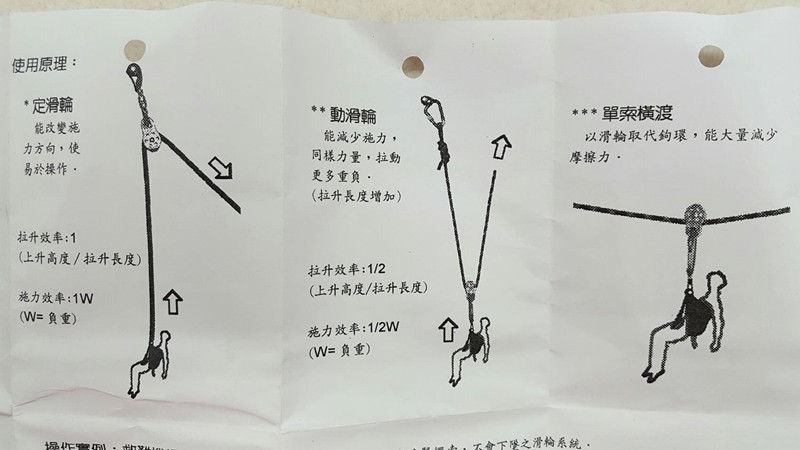 使用原理：
*定滑輪
能改變施
力方向，使
易於操作．
拉升效率:1
(上升高度/拉升長度)
施力效率:1W
(W=負重)
**動滑輪
能減少施力，
同樣力量，拉動
更多重負．
(拉升長度增加)
拉升效率:1/2
(上升高度/拉升長度)
施力效率:1/2W
(W=負重)
***單索橫渡
以滑輪取代鉤環，能大量減少
摩擦力．
操作實例：
不會下墜之滑輪系統．